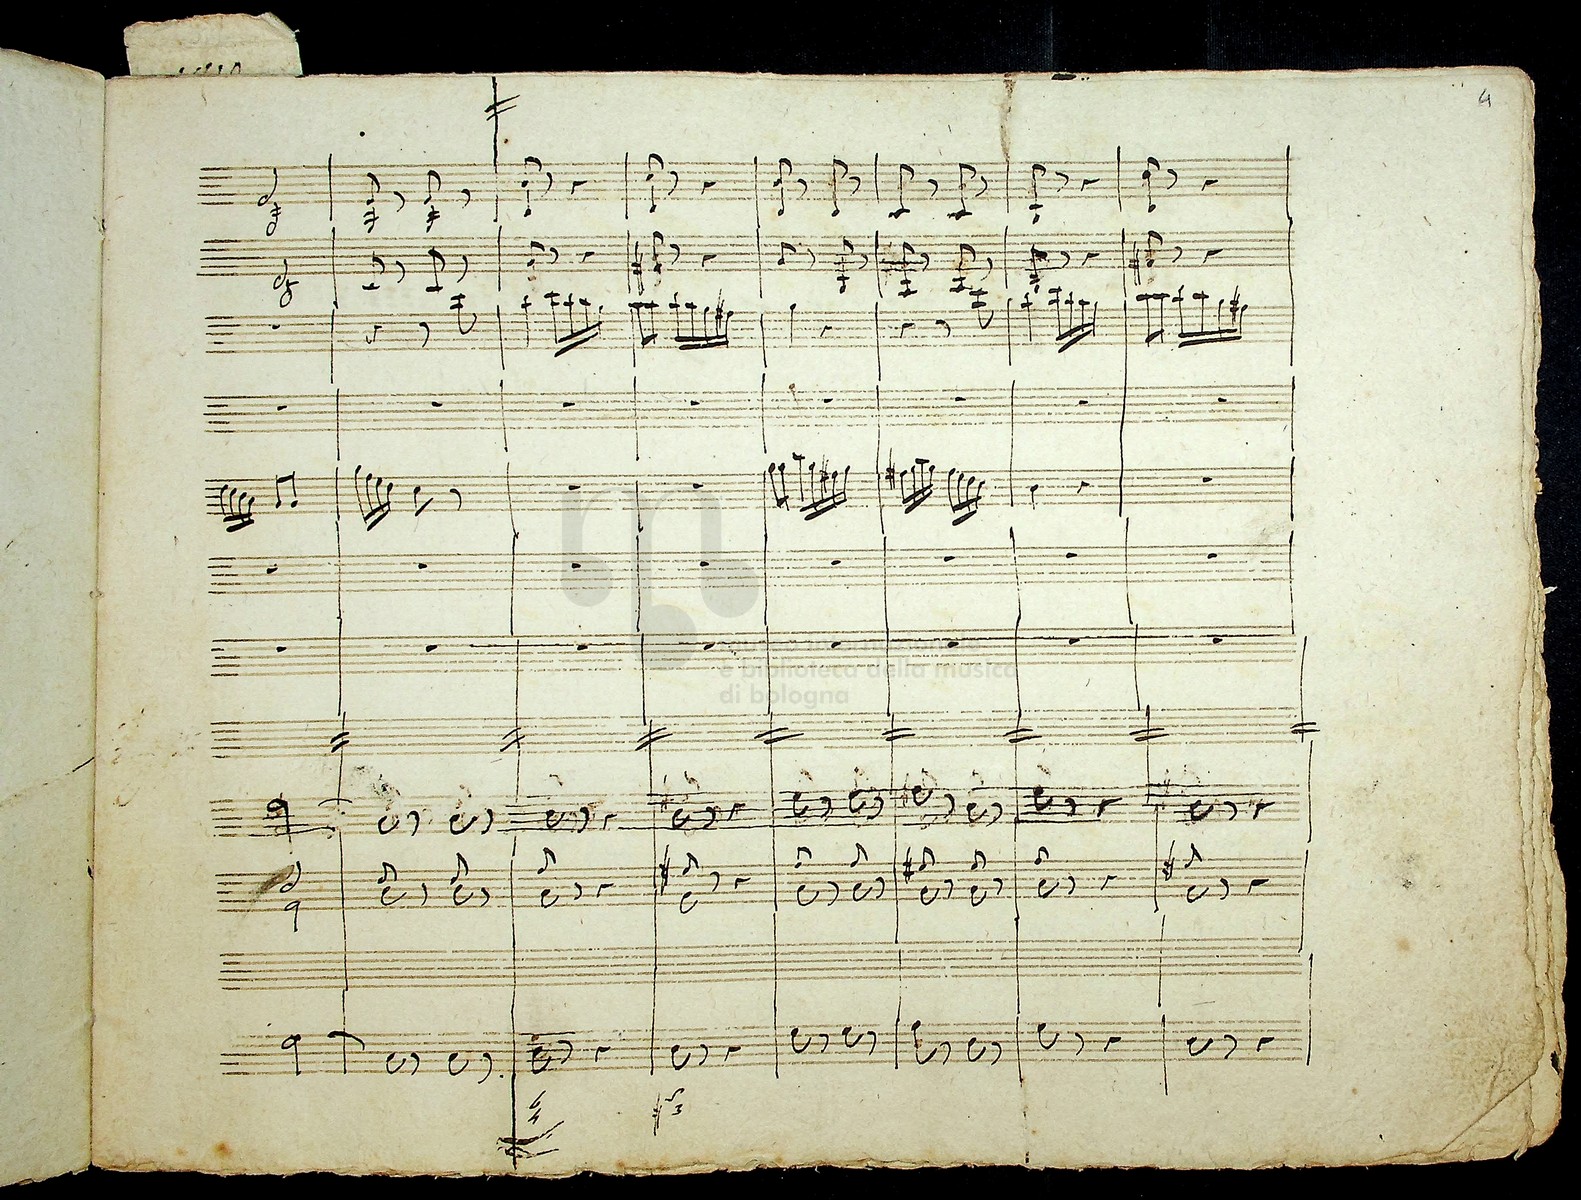 4
museo internazionale
e biblioteca della musica
di bologna
6
4
5
3